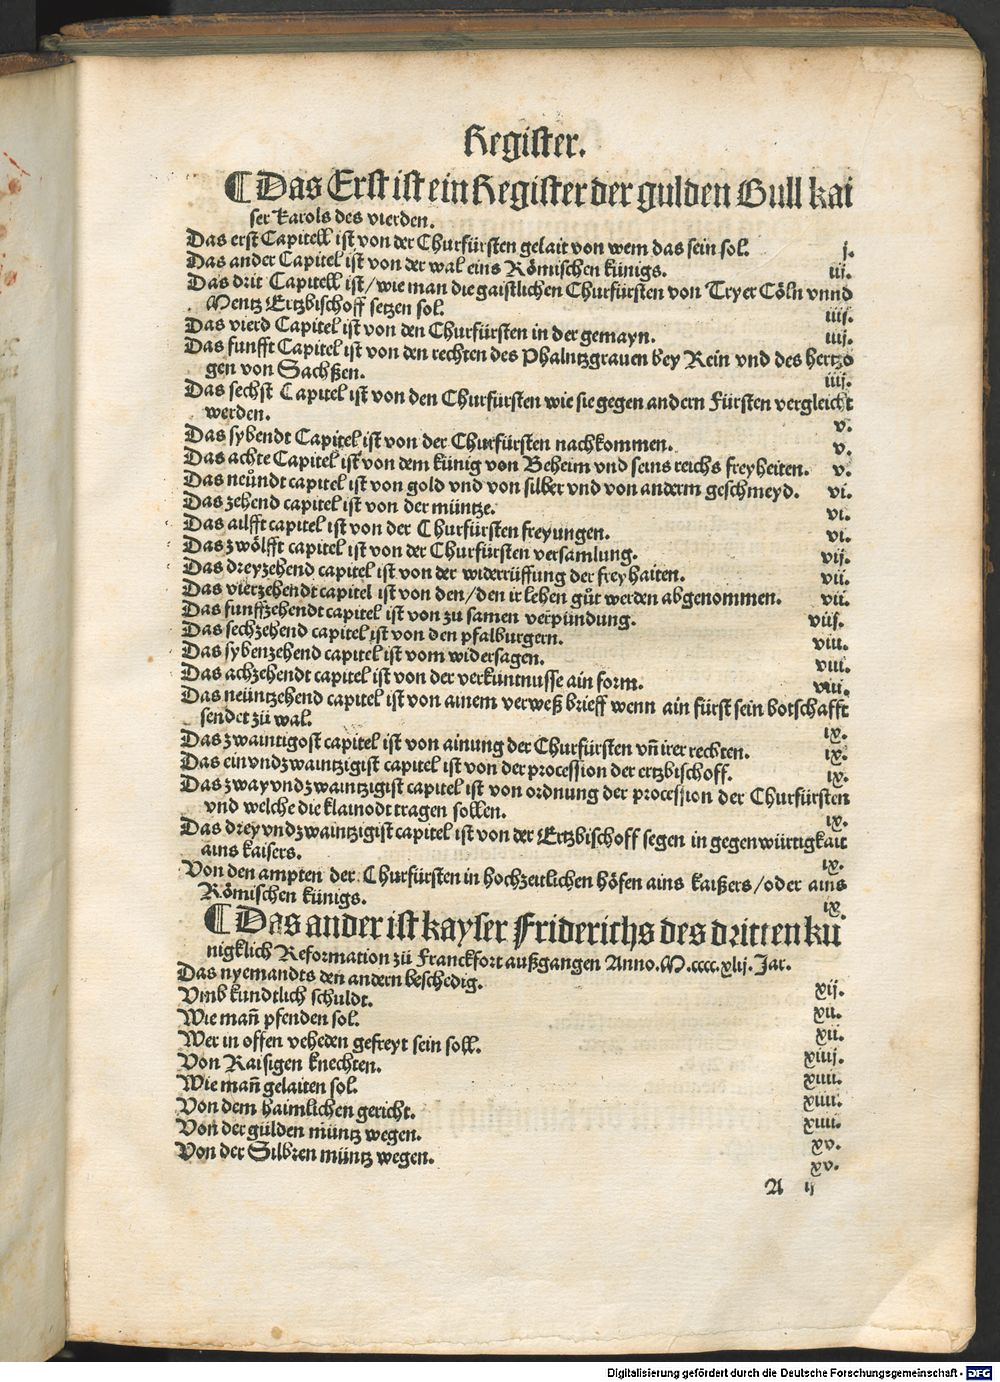 Register.
¶ Das Erst ist ein Register der gulden Bull kai
ser Karols des vierden.
Das erst Capitell ist von der Churfürsten gelait von wem das sein sol. j.
Das ander Capitel ist von der wal eins Römischen künigs. iij.
Das drit Capitell ist/wie man die gaistlichen Churfürsten von Tryer Cöln vnnd
Mentz Ertzbischoff setzen sol. iiij.
Das vierd Capitel ist von den Churfürsten in der gemayn. iiij.
Das funfft Capitel ist von den rechten des Phalntzgrauen bey Rein vnd des hertzo
gen von Sachßen. iiij.
Das sechst Capitel ist von den Churfürsten wie sie gegen andern Fürsten vergleicht
werden. v.
Das sybendt Capitel ist von der Churfürsten nachkommen. v.
Das achte Capitel ist von dem künig von Beheim vnd seins reichs freyheiten. v.
Das neündt capitel ist von gold vnd von silber vnd von anderm geschmeyd. vi.
Das zehend capitel ist von der müntze. vi.
Das ailfft capitel ist von der Churfürsten freyungen. vi.
Das zwölfft capitel ist von der Churfürsten versamlung. vij.
Das dreyzehend capitel ist von der widerrüffung der freyhaiten. vii.
Das vierzehendt capitel ist von den/den ir lehen gůt werden abgenommen. vii.
Das funffzehendt capitel ist von zu samen verpündung. viij.
Das sechzehend capitel ist von den pfalburgern. viii.
Das sybenzehend capitel ist vom widersagen. viii.
Das achzehendt capitel ist von der verküntnusse ain form. viii.
Das neüntzehend capitel ist von ainem verweß brieff wenn ain fürst sein botschafft
sendet zů wal. ix.
Das zwaintigost capitel ist von ainung der Churfürsten vñ irer rechten. ix.
Das ein vnd zwaintzigist capitel ist von der procession der ertzbischoff. ix.
Das zway vnd zwaintzigist capitel ist von ordnung der procession der Churfürsten
vnd welche die klainodt tragen sollen. ix.
Das drey vnd zwaintzigist capitel ist von der Ertzbischoff segen in gegenwürtigkait
ains kaisers. ix.
Von den ampten der Churfürsten in hochzeitlichen höfen ains kaißers/oder ains
Römischen künigs. ix.
¶ Das ander ist kayser Friderichs des dritten kü
nigklich Reformation zů Franckfort außgangen Anno.M.cccc.xlij.Jar.
Das nyemandts den andern beschedig. xij.
Vmb kundtlich schuldt. xii.
Wie mañ pfenden sol. xii.
Wer in offen veheden gefreyt sein soll. xiiij.
Von Raisigen knechten. xiiii.
Wie mañ gelaiten sol. xiiii.
Von dem haimlichen gericht. xiiii.
Von der gülden müntz wegen. xv.
Von der Silbren müntz wegen. xv.
A ij
Digitalisierung gefördert durch die Deutsche Forschungsgemeinschaft - DFG